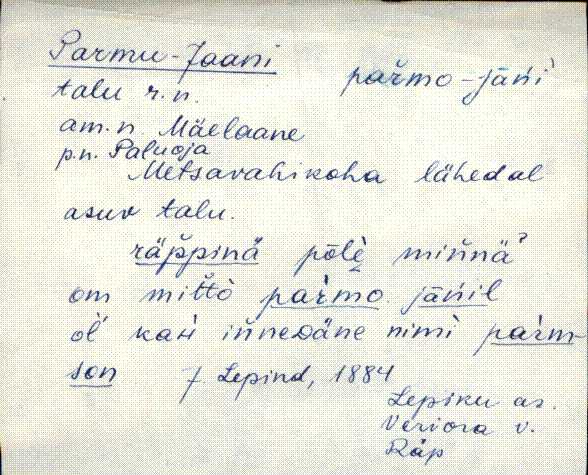 Parmu-Jaani pär̆mo-jāńì
talu r.n.
am.n. Mäelaane
p.n. Paluoja
Metsavahikoha lähedal
asuv talu.
räp̆pinä põlè miňnä?
om mit̆tò pàrmo jāńil
òĺ kaśi ińneᴅäne nimì pàrm-
son J. Lepind, 1884
Lepiku as.
Veriora v.
Räp